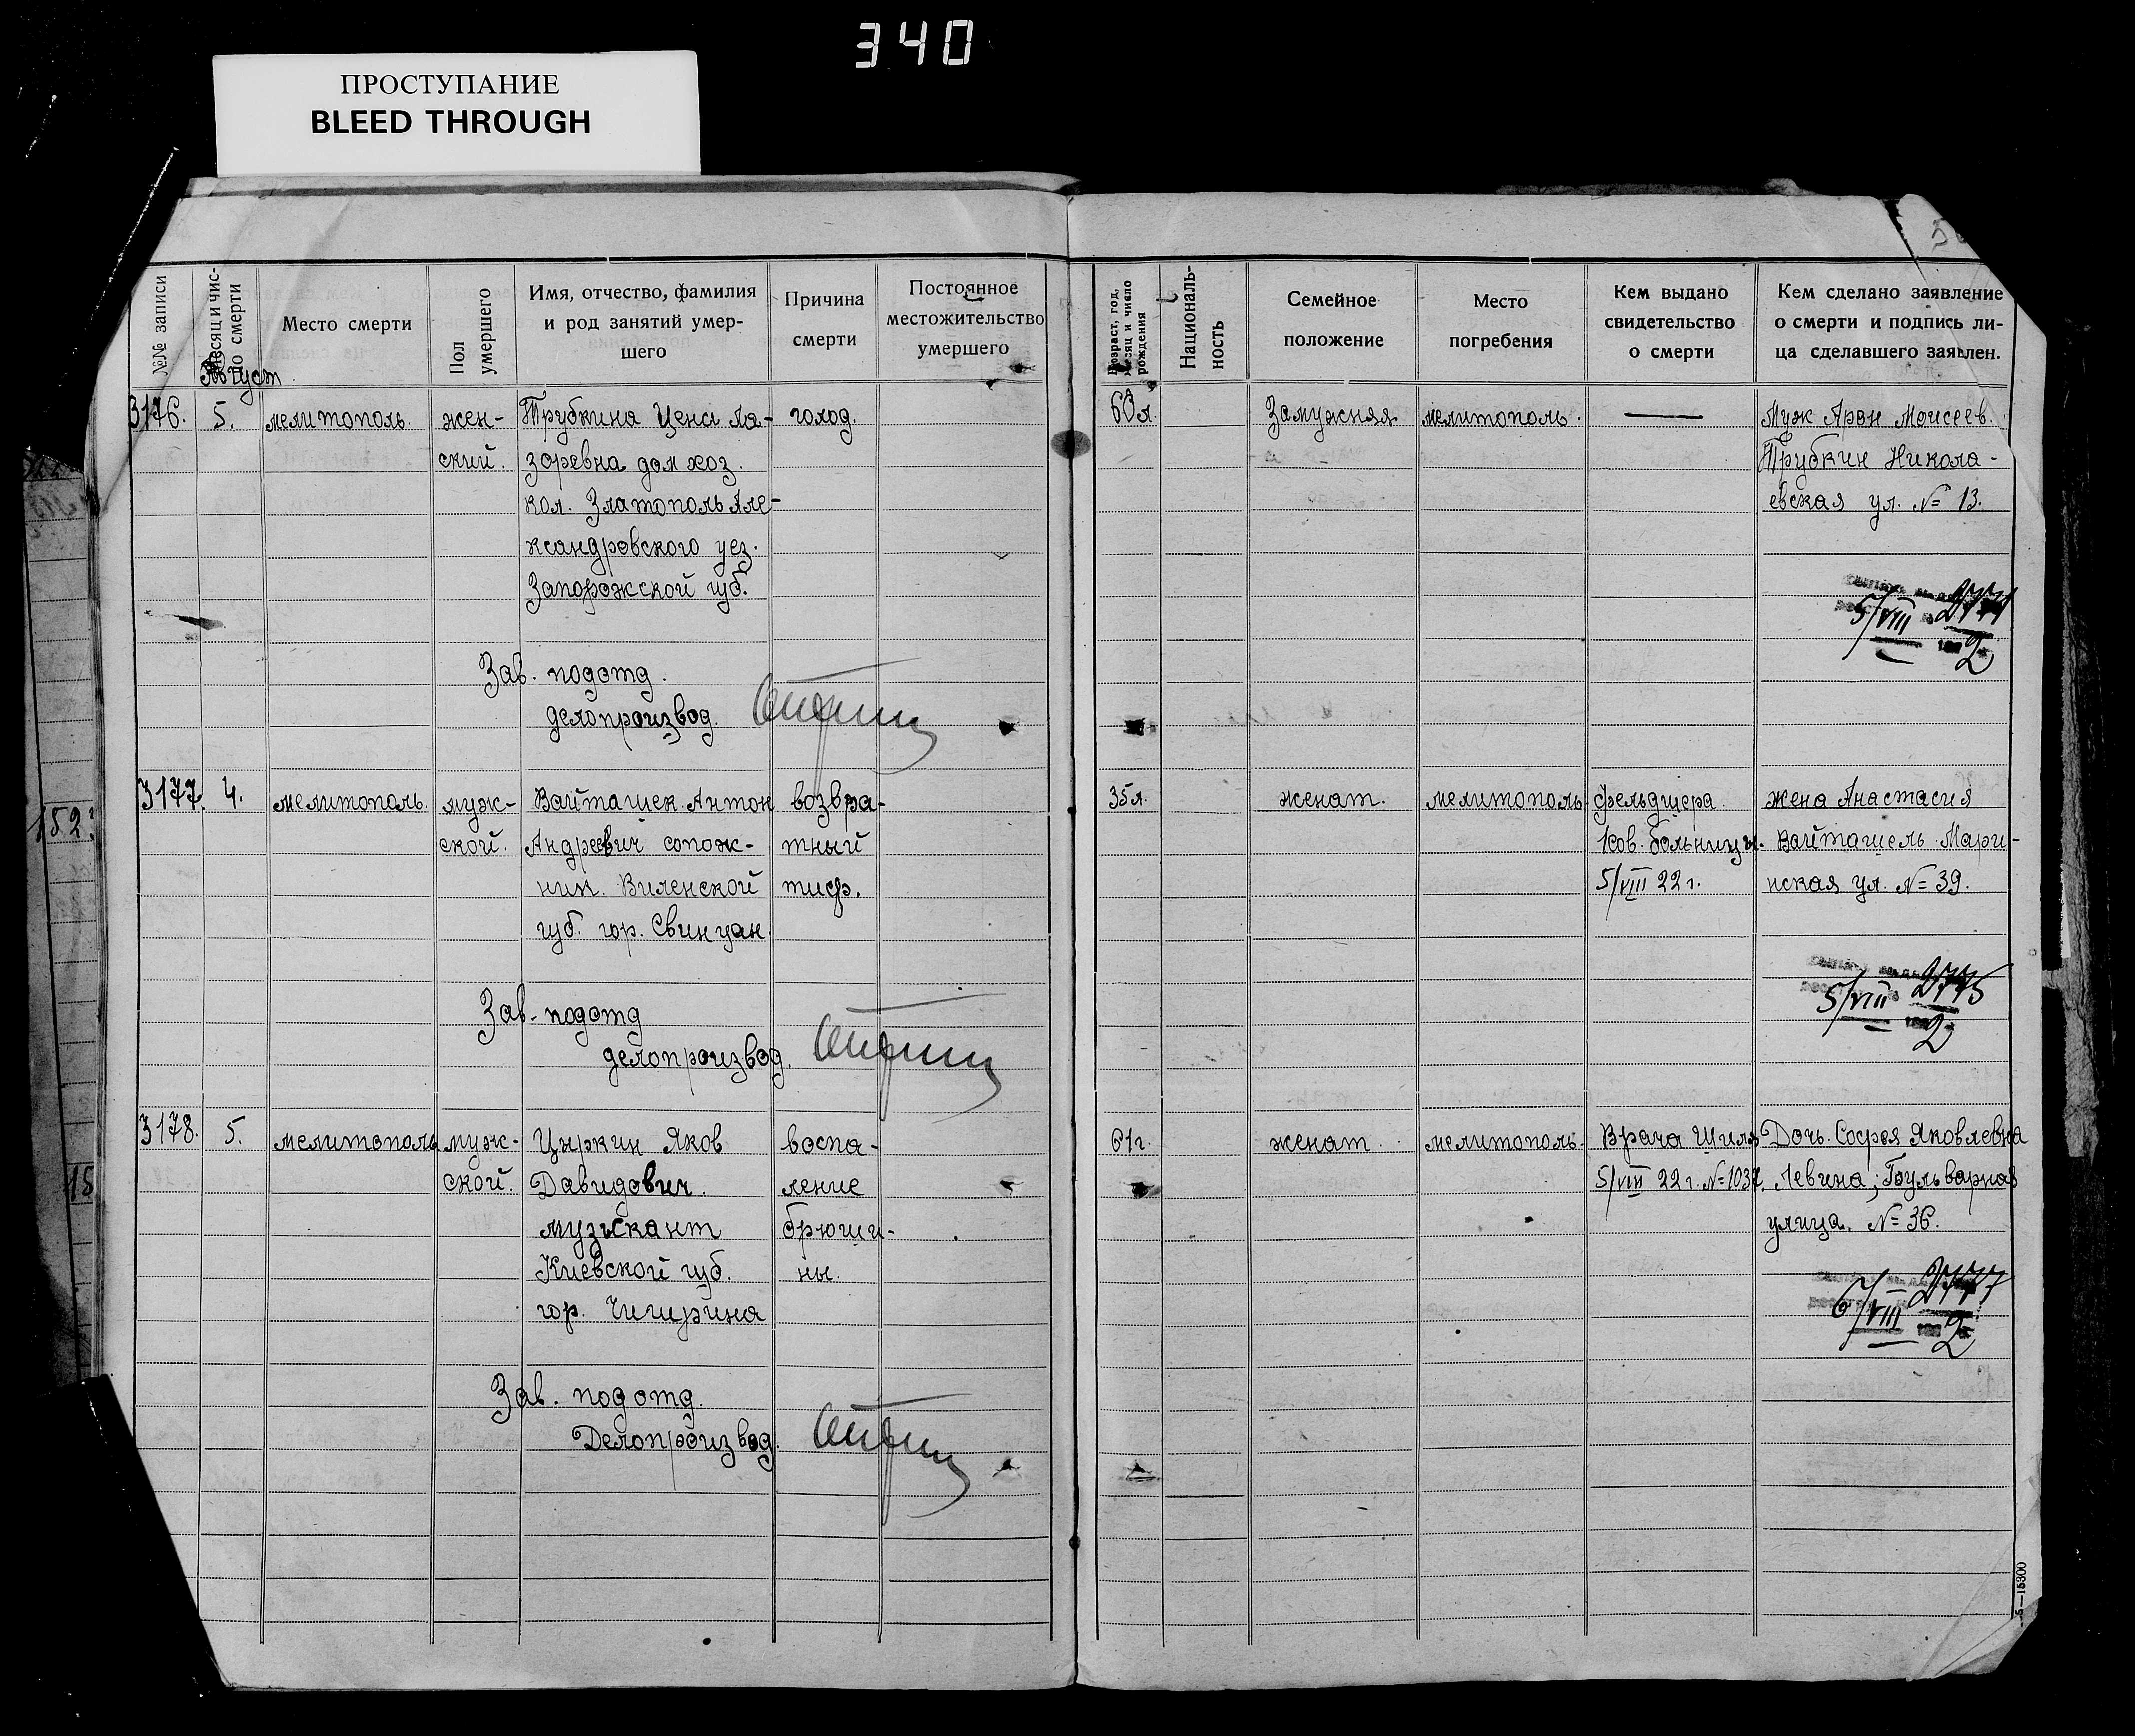 340
ПРОСТУПАНИЕ
BLEED THROUGH
№№ записи
Месяц и чис-
ло смерти
Место смерти
Пол
умершего
Имя, отчество, фамилия
и род занятий умер-
шего
Причина
смерти
Постоянное
местожительство
умершего
Возраст, год,
месяц и число
рождения
Националь-
ность
Семейное
положение
Место
погребения
Кем выдано
свидетельство
о смерти
Кем сделано заявление
о смерти и подпись ли-
ца сделавшего заявлен.
Август
3176.
5.
мелитополь.
жен-
ский.
Трубкина Цена Ла-
зоревна дом хоз.
кол. Златополь Але-
ксандровского уез.
Запорожской губ.
голод.
60 л.
Замужняя
мелитополь.
Муж Арон Моисеев.
Трубкин Никола-
евская ул. № 13.
5/VIII 2771
2
Зав. подотд.
делопроизвод.
3177.
4.
мелитополь.
муж-
ской.
Вайташек Антон
Андреевич сопож-
ник. Виленской
губ. гор. Свинцан
возвра-
тный
тиф.
35 л.
женат.
мелитополь
фельдшера
ков. больницы.
5/VIII 22 г.
жена Анастасия
Вайташель Мари-
нская ул. № 39.
5/VIII 2775
2
Зав. подотд
делопроизвод.
3178.
5.
мелитополь
муж-
ской.
Цыркин Яков
Давидович.
музыкант
Киевской губ.
гор. Чигирина
воспа-
ление
брюши-
ны.
61 г.
женат.
мелитополь.
Врача Шиля
5/VIII 22 г. № 1037.
Дочь. Софья Яковлевна
Левина, Бульварная
улица. № 36.
6/VIII 2777
2
Зав. подотд.
Делопроизвод.
152
15
5—15300